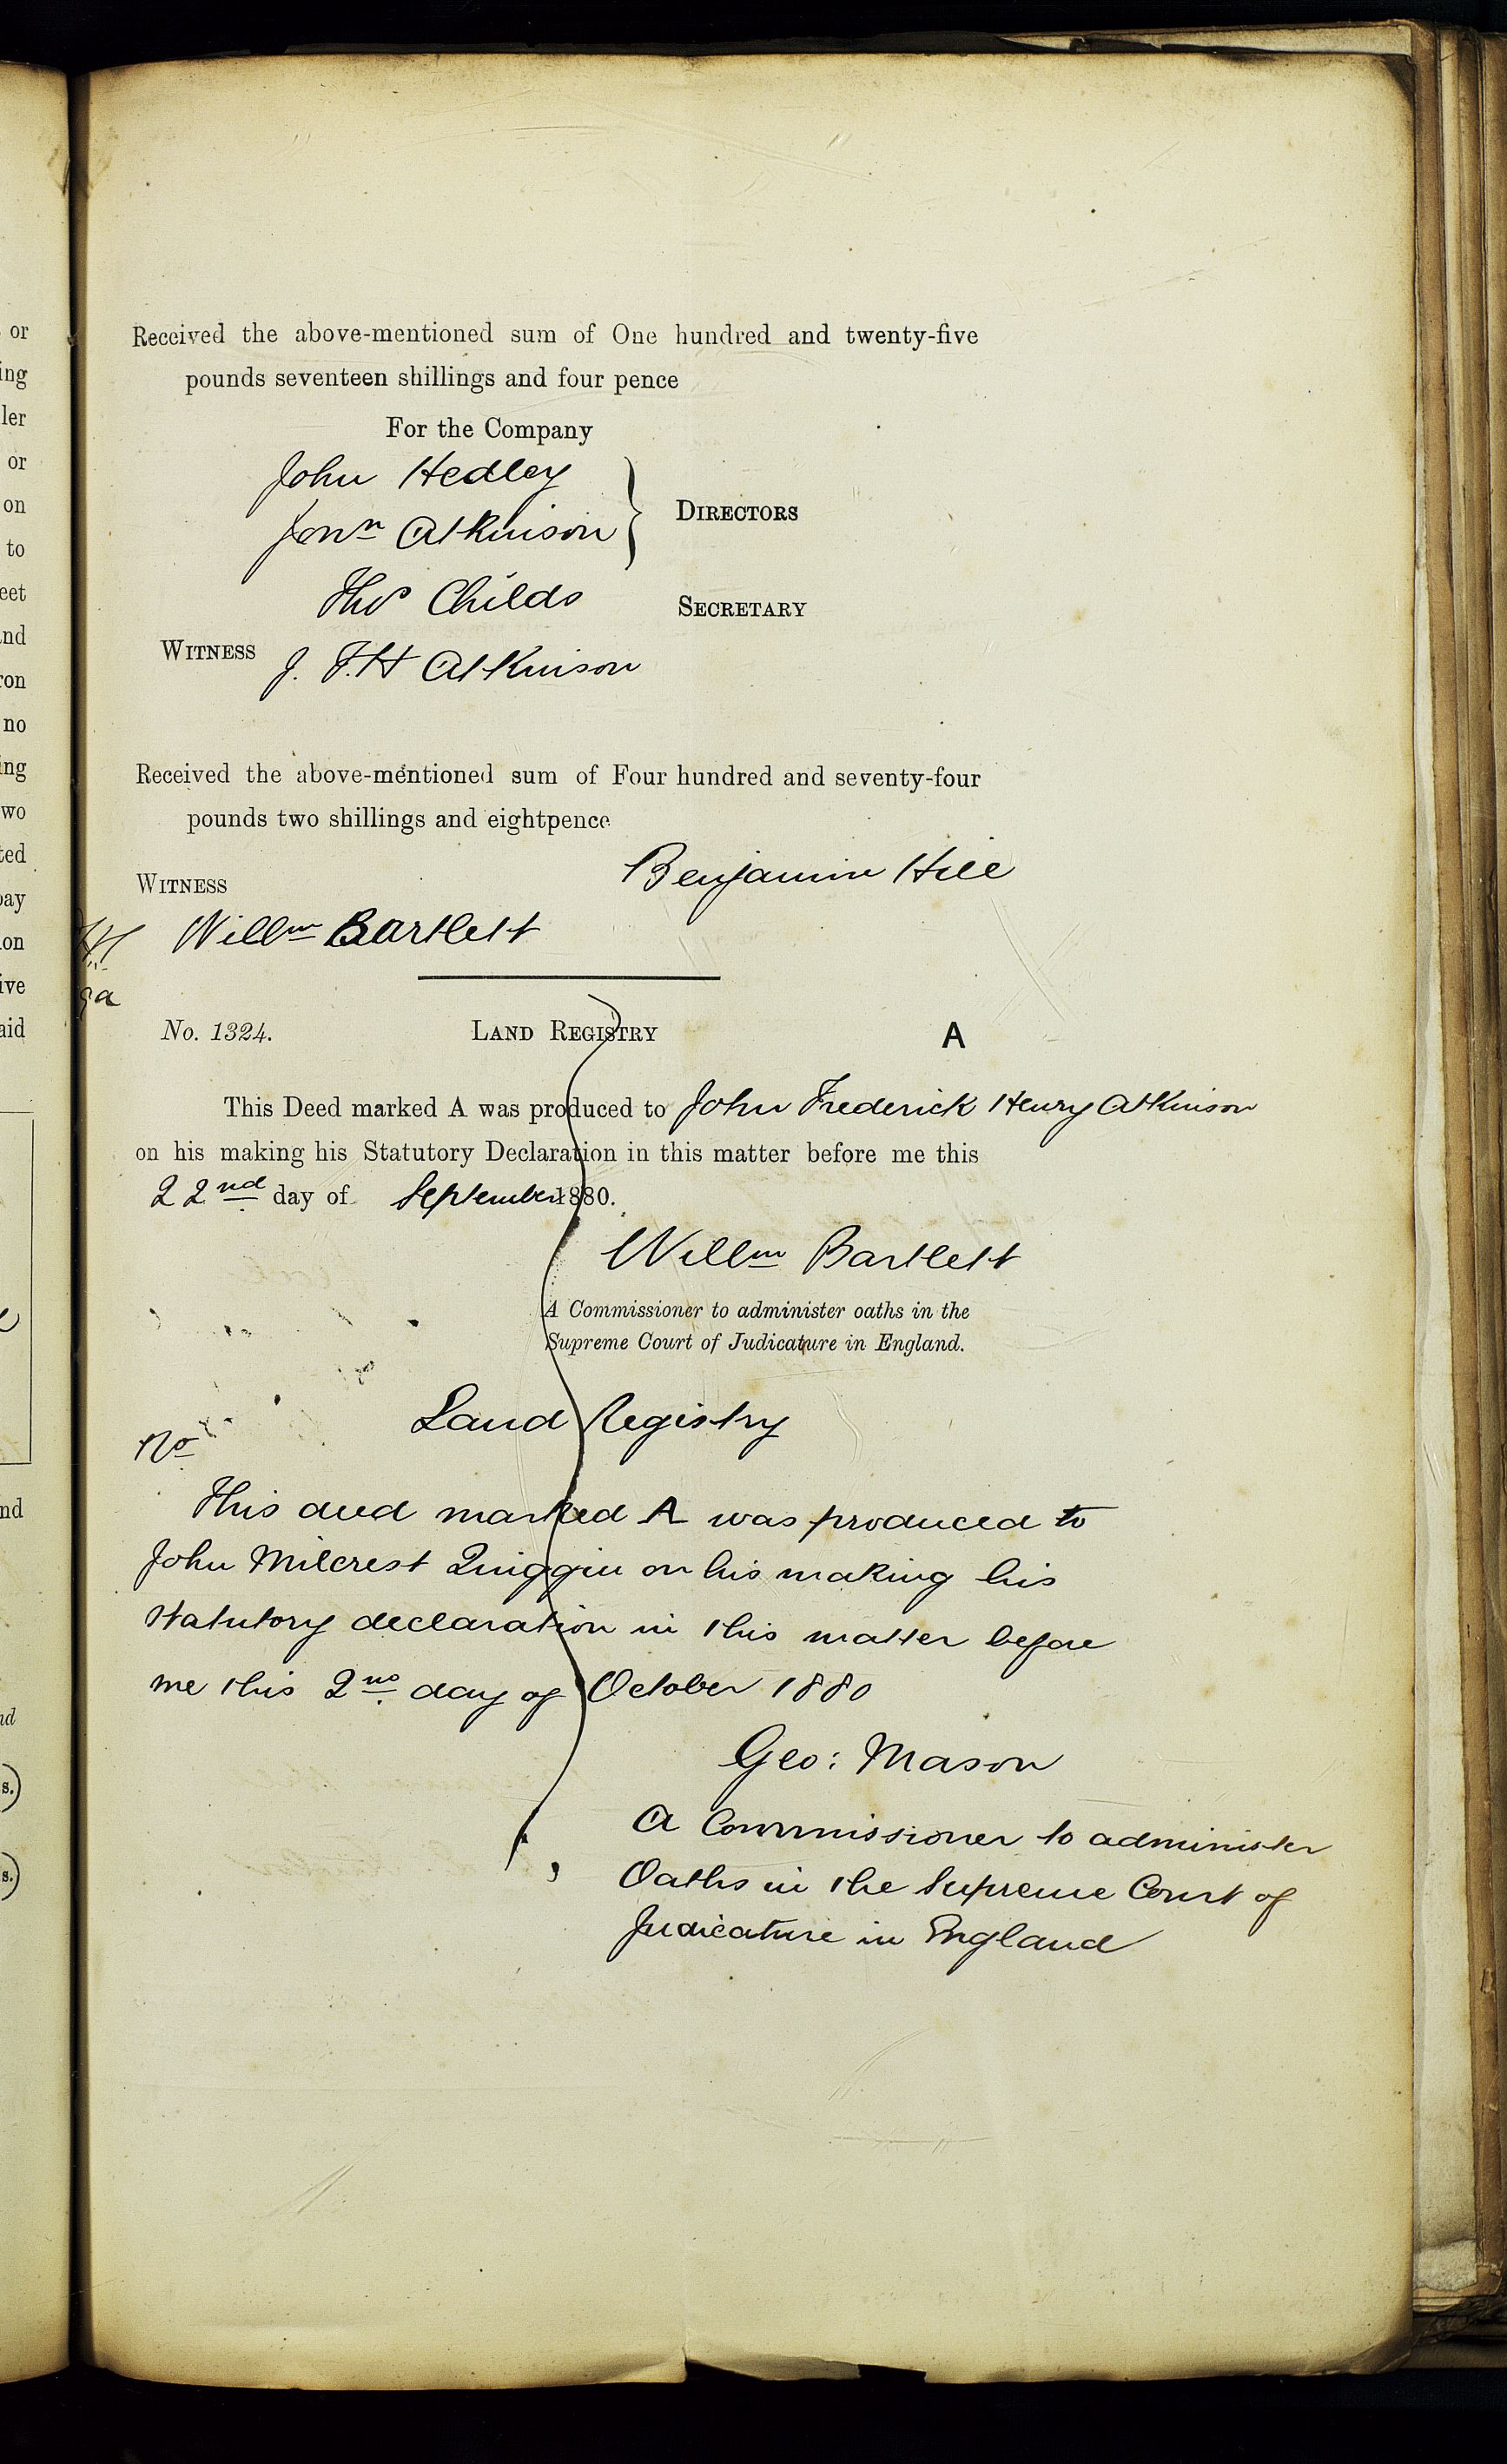 Received the above-mentioned sum of One hundred and twenty-five
pounds seventeen shillings and four pence
For the Company
John Hedley
Jonn Atkinson
DIRECTORS
Thos Childs
SECRETARY
WITNESS J. F. H Atkinson
Received the above-mentioned sum of Four hundred and seventy-four
pounds two shillings and eightpence
Benjamin Hill
WITNESS
Willm Bartlett
No. 1324. LAND REGISTRY A
This Deed marked A was produced to John Frederick Henry Atkinson
on his making his Statutory Declaration in this matter before me this
22nd day of September 1880.
Willm Bartlett
A Commissioner to administer oaths in the
Supreme Court of Judicature in England.
Land Registry
No
This deed marked A was produced to
John Milcrest Quiggin on his making his
statutory declaration in this matter before
me this 2nd day of October 1880
Geo: Mason
A Commissioner to administer
Oaths in the Supreme Court of
Judicature in England